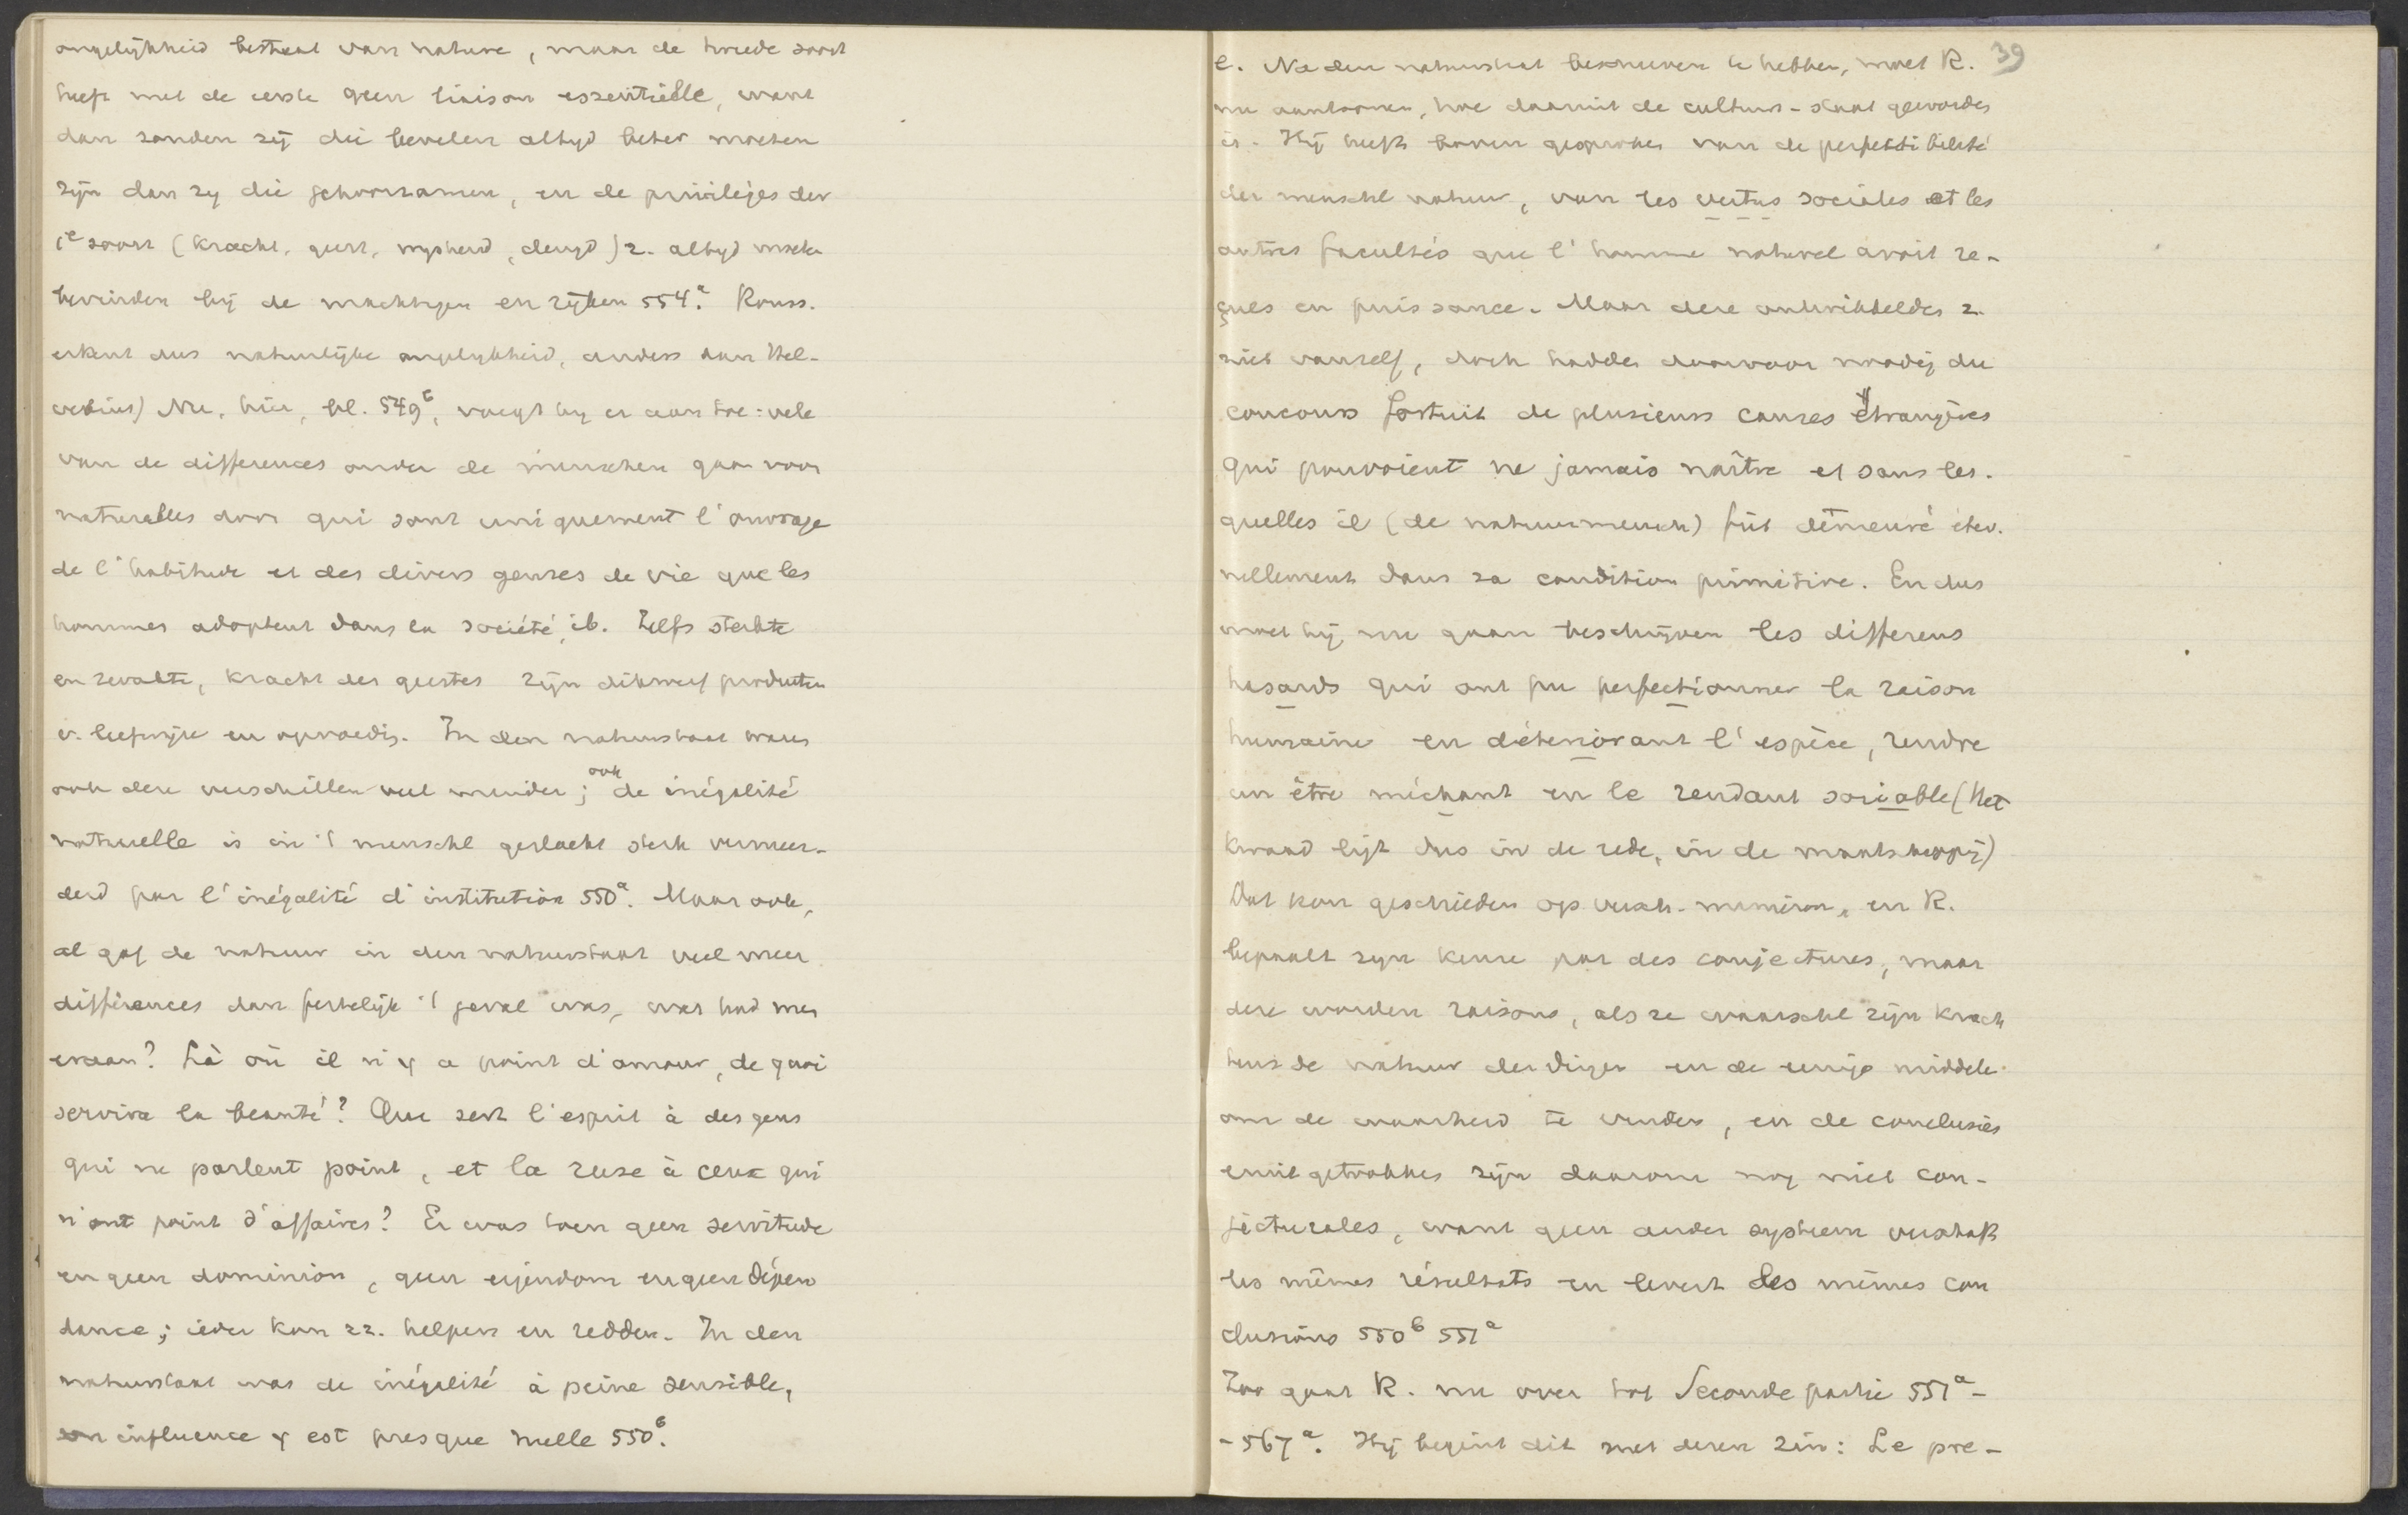 ongelijkheid bestaat van nature, maar de tweede soort
heeft met de eerste geen liaison essentielle, want
dan zouden zij die bevelen altijd beter moeten
zijn dan zy die gehoorzamen, en de privileges der
1e soort (kracht, geest, wijsheid, deugd) z. altyd moeten
bevinden bij de machtigen en rijken 554a. Rouss.
erkent dus natuurlijke ongelykheid, anders dan Hel-
vetius) Nu, hier, bl. 549b, voegt hy er aan toe: vele
van de differences onder de menschen gaan voor
naturelles door qui sont uniquement l'ouvrage
de l'habitude et des divers genres de vie que les
hommes adoptent dans la société, ib. Zelfs sterkte
en zwakte, kracht des geestes zijn dikwerf producten
v. leefwijze en opvoedig. In den natuurstaat waren
ook deze verschillen veel minder; ook de inégalité
naturelle is in 't menschl geslacht sterk vermeer-
derd par l'inégalité d'institution 550a. Maar ook,
al gaf de natuur in den natuurstaat veel meer
différences dan feitelijk 't geval was, wat had men
eraan? Là où il n'y a point d'amour, de quoi
servira la beauté? Que sert l'esprit à des gens
qui ne parlent point, et la ruse à ceux qui
n'ont point d'affaires? Er was toen geen servitude
en geen dominion, geen eigendom en geen dépen
dance; ieder kon zz. helpen en redden. In den
natuurstaat was de inégalité à peine sensible,
son influence y est presque nulle 550b.
39
e. Na den natuurstaat beschreven te hebben, moet R.
nu aantoonen, hoe daaruit de cultuur-staat geworden
is. Hij heeft boven gesproken van de perfectibilité
der menschl natuur, van les vertus sociales et les
autres facultés que l'homme naturel avoit re-
çues en puissance. Maar deze ontwikkelden z.
niet vanzelf, doch hadden daarvoor noodig du
concours fortuit de plusieurs causes étrangères
qui pouvoient ne jamais naître et sans les-
quelles il (de natuurmensch) fût demeuré éter-
nellement dans sa condition primitive. En dus
moet hij nu gaan beschrijven les differens
hasards qui ont pu perfectionner la raison
humaine en déteriorant l'espèce, rendre
un être méchant en le rendant sociable (Het
kwaad ligt dus in de rede, in de maatschappij)
Dat kon geschieden op versch. manieren, en R.
bepaalt zyn keuze par des conjectures, maar
deze worden raisons, als ze waarschl zijn krach
tens de natuur der dingen en de eenige middele.
om de waarheid te vinden, en de conclusies
eruit getrokken zijn daarom nog niet con-
jecturales, want geen ander systeem verschaft
les mêmes résultats en levert les mêmes con
clusions 550b 551a
Zoo gaat R. nu over tot Seconde partie 551a-
-567a. Hij begint dit met dezen zin: Le pre-